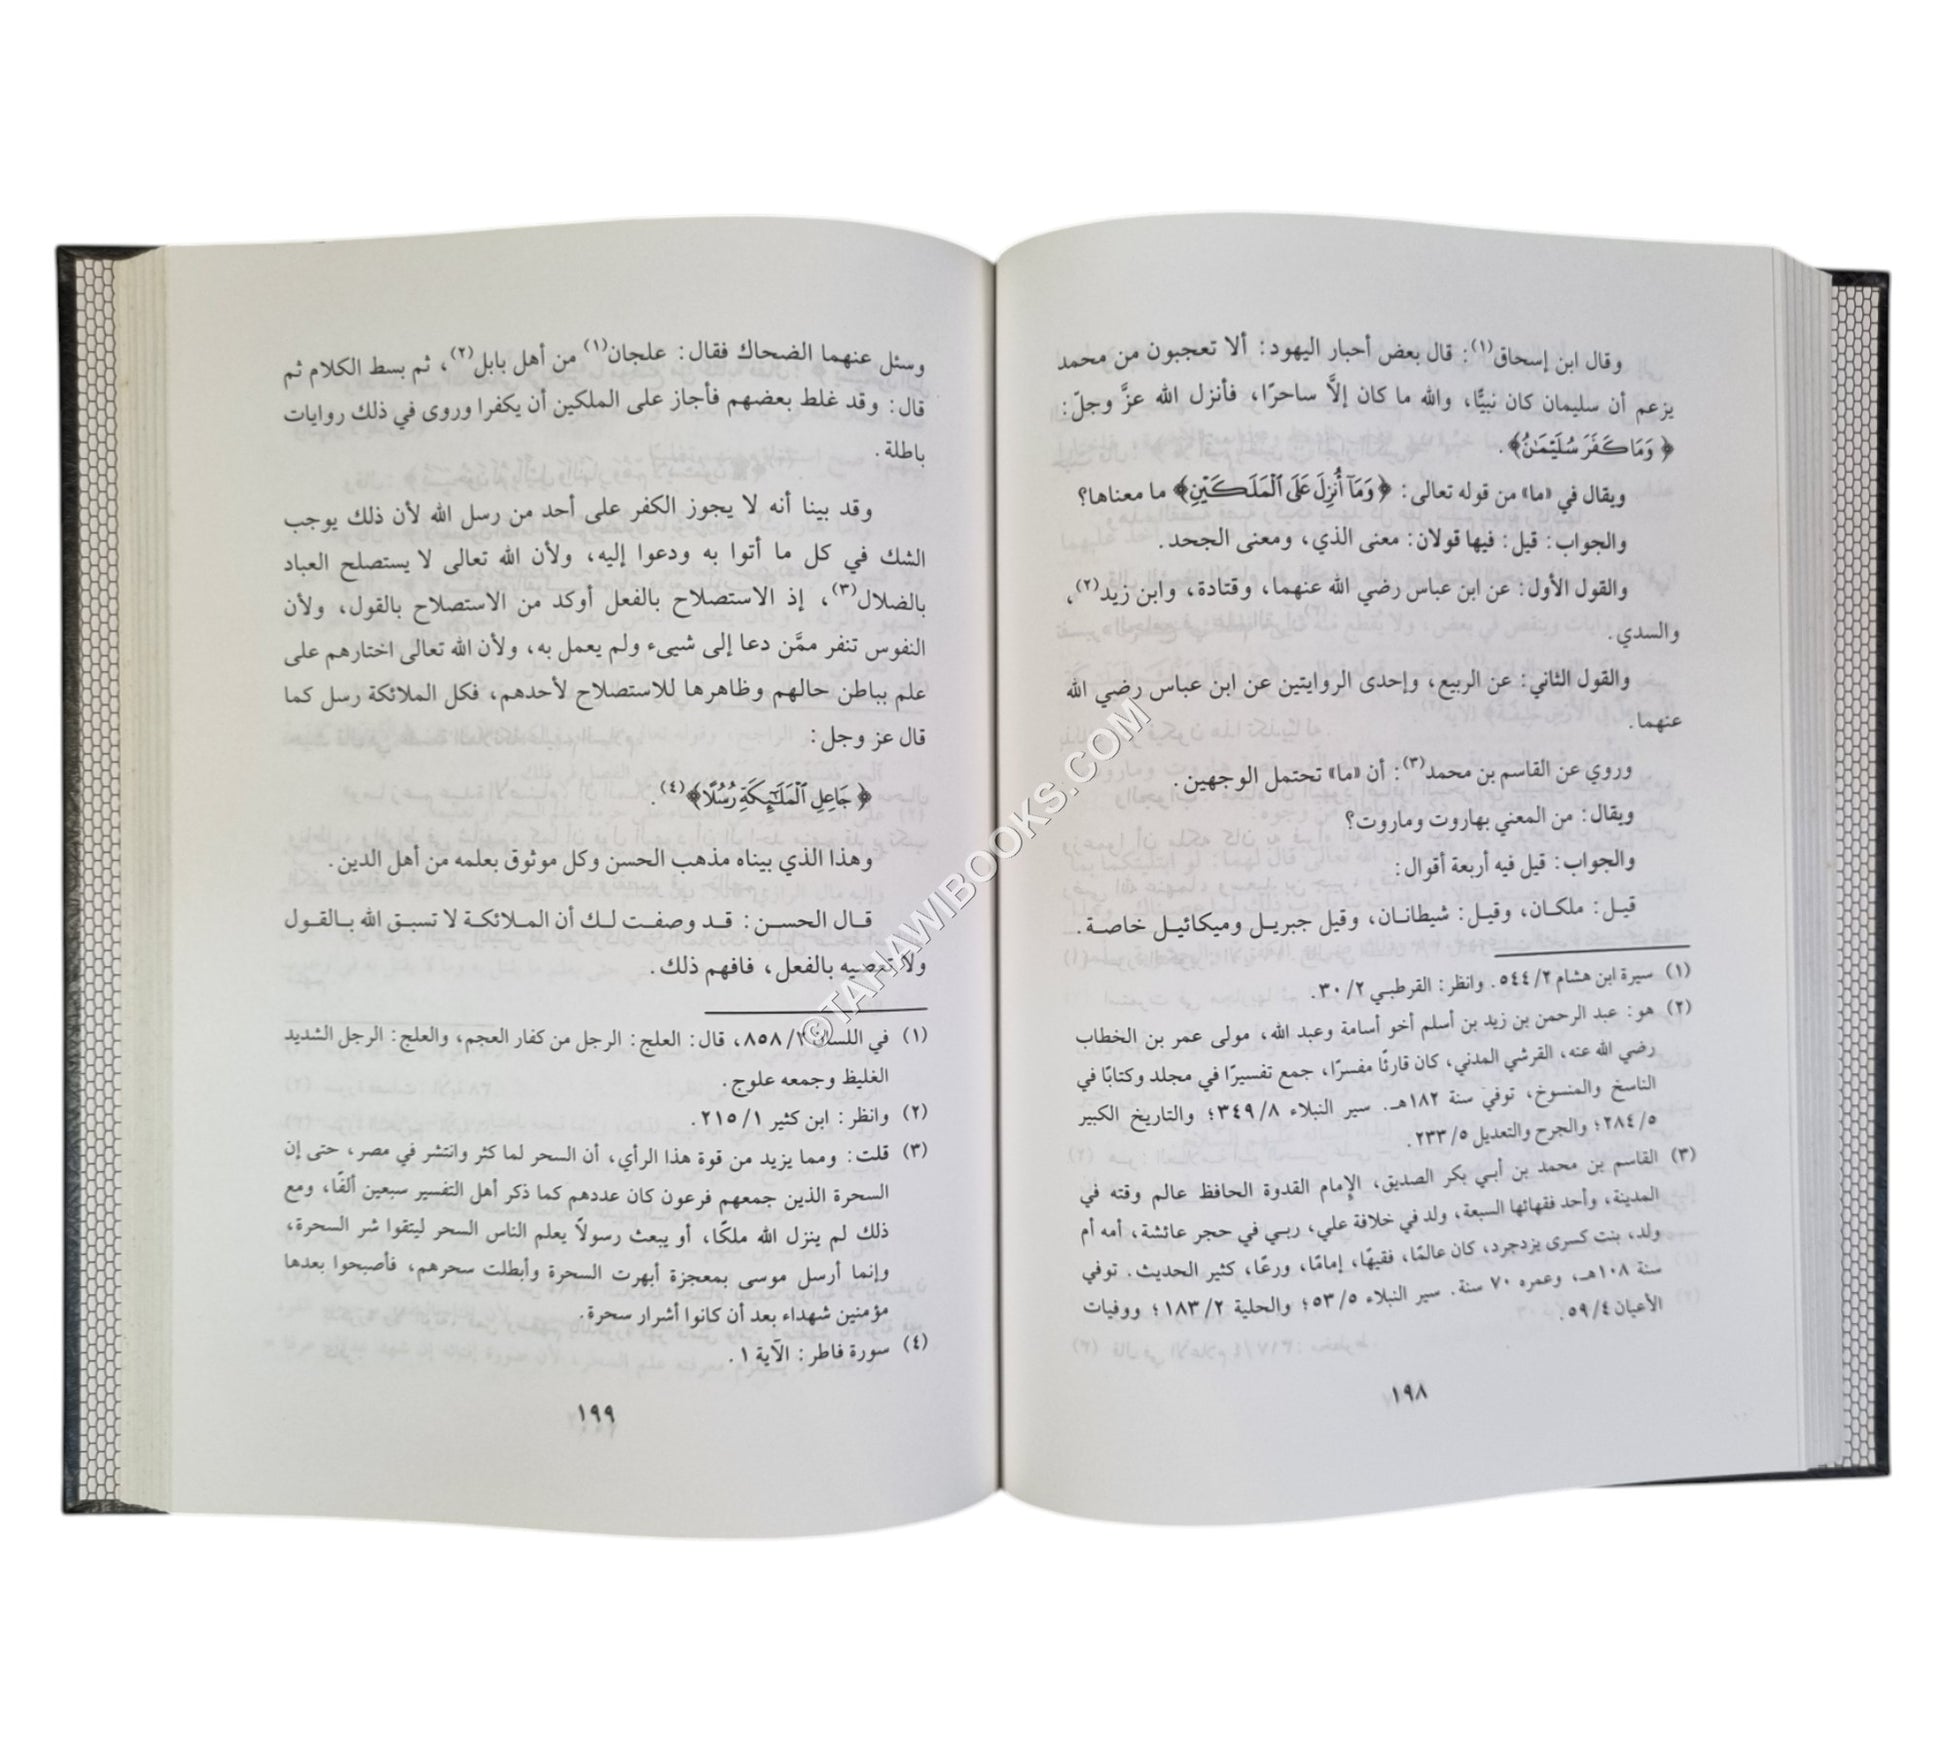 وقال ابن إسحاق(١): قال بعض أحبار اليهود: ألا تعجبون من محمد
يزعم أن سليمان كان نبيًّا، والله ما كان إلَّا ساحرًا، فأنزل الله عزَّ وجلّ:
﴿وَمَا كَفَرَ سُلَيْمَٰنُ﴾.
ويقال في «ما» من قوله تعالى: ﴿وَمَآ أُنزِلَ عَلَى ٱلْمَلَكَيْنِ﴾ ما معناها؟
والجواب: قيل: فيها قولان: معنى الذي، ومعنى الجحد.
والقول الأول: عن ابن عباس رضي الله عنهما، وقتادة، وابن زيد(٢)،
والسدي.
والقول الثاني: عن الربيع، وإحدى الروايتين عن ابن عباس رضي الله
عنهما.
وروي عن القاسم بن محمد(٣): أن «ما» تحتمل الوجهين.
ويقال: من المعني بهاروت وماروت؟
والجواب: قيل فيه أربعة أقوال:
قيل: ملكان، وقيل: شيطانان، وقيل جبريل وميكائيل خاصة.
(١) سيرة ابن هشام ٢/٥٤٤. وانظر: القرطبي ٢/٣٠.
(٢) هو: عبد الرحمن بن زيد بن أسلم أخو أسامة وعبد الله، مولى عمر بن الخطاب
رضي الله عنه، القرشي المدني، كان قارئًا مفسرًا، جمع تفسيرًا في مجلد وكتابًا في
الناسخ والمنسوخ، توفي سنة ١٨٢هـ. سير النبلاء ٨/٣٤٩؛ والتاريخ الكبير
٥/٢٨٤؛ والجرح والتعديل ٥/٢٣٣.
(٣) القاسم بن محمد بن أبي بكر الصديق، الإمام القدوة الحافظ عالم وقته في
المدينة، وأحد فقهائها السبعة، ولد في خلافة علي، ربي في حجر عائشة، أمه أم
ولد، بنت كسرى يزدجرد، كان عالمًا، فقيهًا، إمامًا، ورعًا، كثير الحديث. توفي
سنة ١٠٨هـ، وعمره ٧٠ سنة. سير النبلاء ٥/٥٣؛ والحلية ٢/١٨٣؛ ووفيات
الأعيان ٤/٥٩.
١٩٨
وسئل عنهما الضحاك فقال: علجان(١) من أهل بابل(٢)، ثم بسط الكلام ثم
قال: وقد غلط بعضهم فأجاز على الملكين أن يكفرا وروى في ذلك روايات
باطلة.
وقد بينا أنه لا يجوز الكفر على أحد من رسل الله لأن ذلك يوجب
الشك في كل ما أتوا به ودعوا إليه، ولأن الله تعالى لا يستصلح العباد
بالضلال(٣)، إذ الاستصلاح بالفعل أوكد من الاستصلاح بالقول، ولأن
النفوس تنفر ممَّن دعا إلى شيىء ولم يعمل به، ولأن الله تعالى اختارهم على
علم بباطن حالهم وظاهرها للاستصلاح لأحدهم، فكل الملائكة رسل كما
قال عز وجل:
﴿جَاعِلِ ٱلْمَلَٰٓئِكَةِ رُسُلًا﴾(٤).
وهذا الذي بيناه مذهب الحسن وكل موثوق بعلمه من أهل الدين.
قال الحسن: قد وصفت لك أن الملائكة لا تسبق الله بالقول
ولا تعصيه بالفعل، فافهم ذلك.
(١) في اللسان ٢/٨٥٨، قال: العلج: الرجل من كفار العجم، والعلج: الرجل الشديد
الغليظ وجمعه علوج.
(٢) وانظر: ابن كثير ١/٢١٥.
(٣) قلت: ومما يزيد من قوة هذا الرأي، أن السحر لما كثر وانتشر في مصر، حتى إن
السحرة الذين جمعهم فرعون كان عددهم كما ذكر أهل التفسير سبعين ألفًا، ومع
ذلك لم ينزل الله ملكًا، أو يبعث رسولًا يعلم الناس السحر ليتقوا شر السحرة،
وإنما أرسل موسى بمعجزة أبهرت السحرة وأبطلت سحرهم، فأصبحوا بعدها
مؤمنين شهداء بعد أن كانوا أشرار سحرة.
(٤) سورة فاطر: الآية ١.
١٩٩
©TAHAWIBOOKS.COM